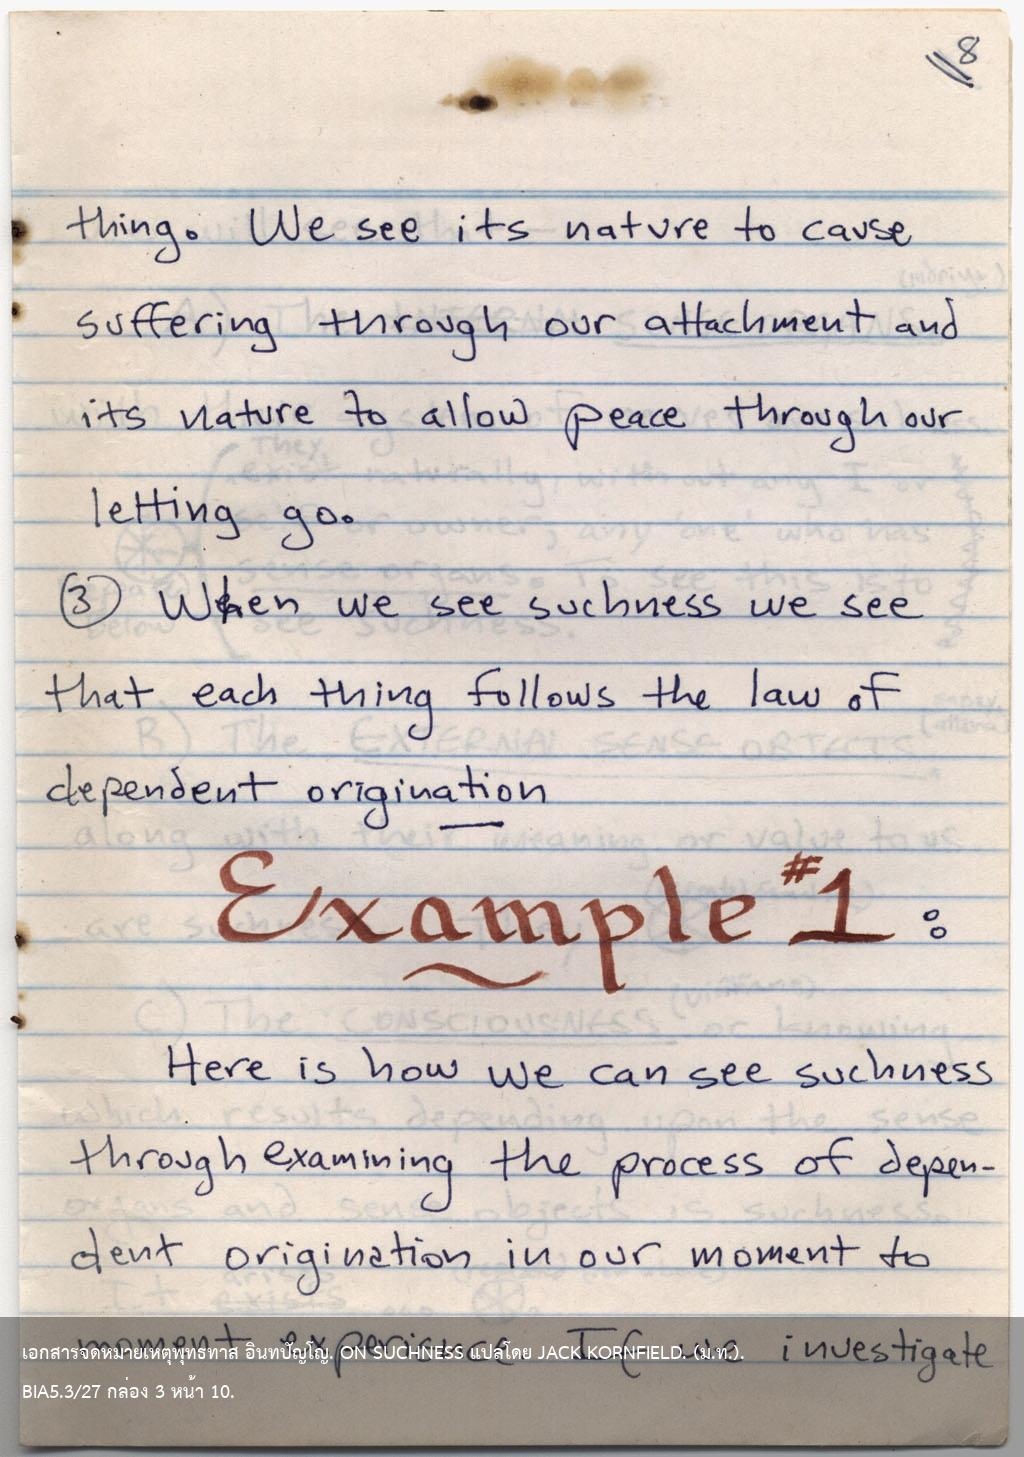 8
thing. We see its nature to cause
suffering through our attachment and
its nature to allow peace through our
letting go.
③ When we see suchness we see
that each thing follows the law of
dependent origination
Example #1:
Here is how we can see suchness
through examining the process of depen-
dent origination in our moment to
moment experience If we investigate
เอกสารจดหมายเหตุพุทธทาส อินทปัญโญ. ON SUCHNESS แปลโดย JACK KORNFIELD. (ม.ท.).
BIA5.3/27 กล่อง 3 หน้า 10.